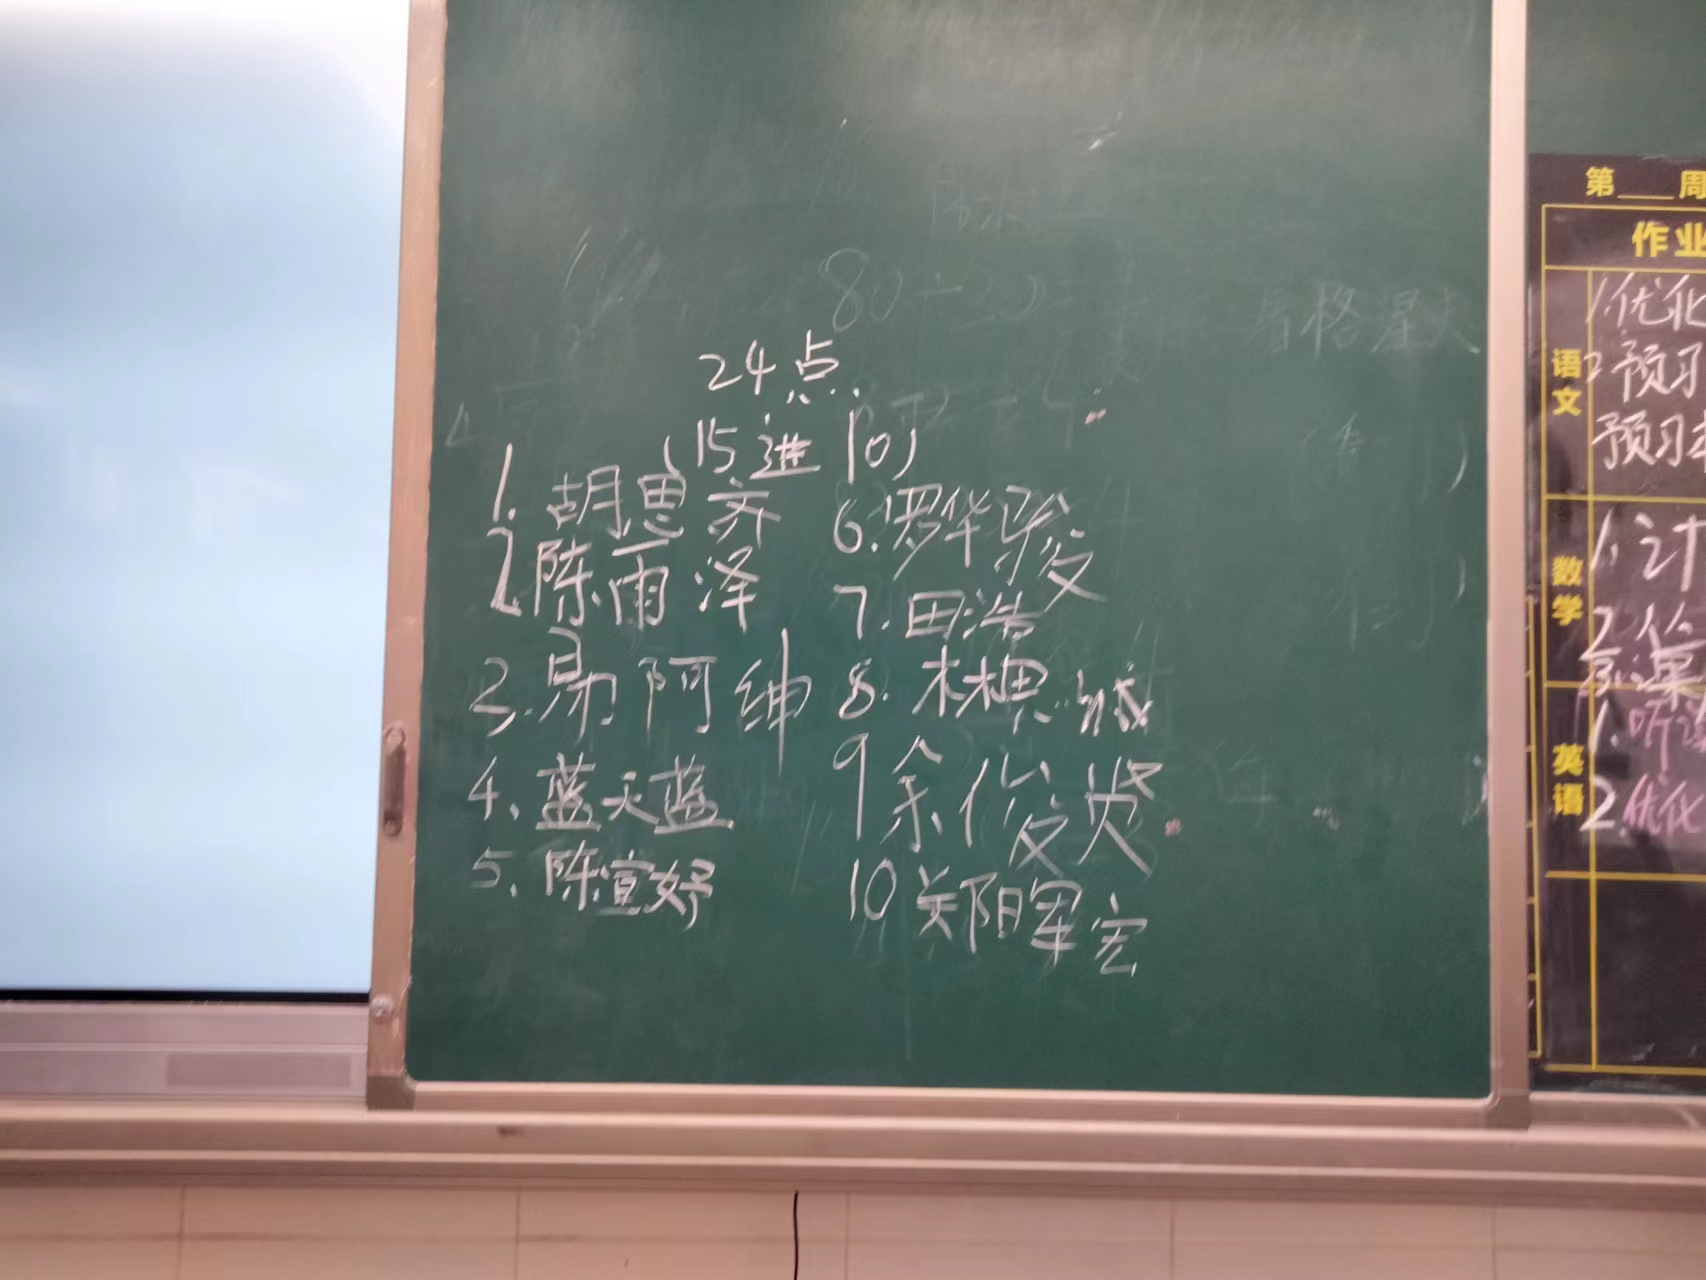 24点
(15进10)
1. 胡思齐
2. 陈雨泽
3. 易阿绅
4. 蓝天蓝
5. 陈宣妤
6. 罗华骏
7. 田浩
8. 林果
9 余俊贤
10 郑阳军宏
第___周
作业
语文
1.优化
2.预习
预习
数学
1.计
2.
3.
英语
1.听
2.优化